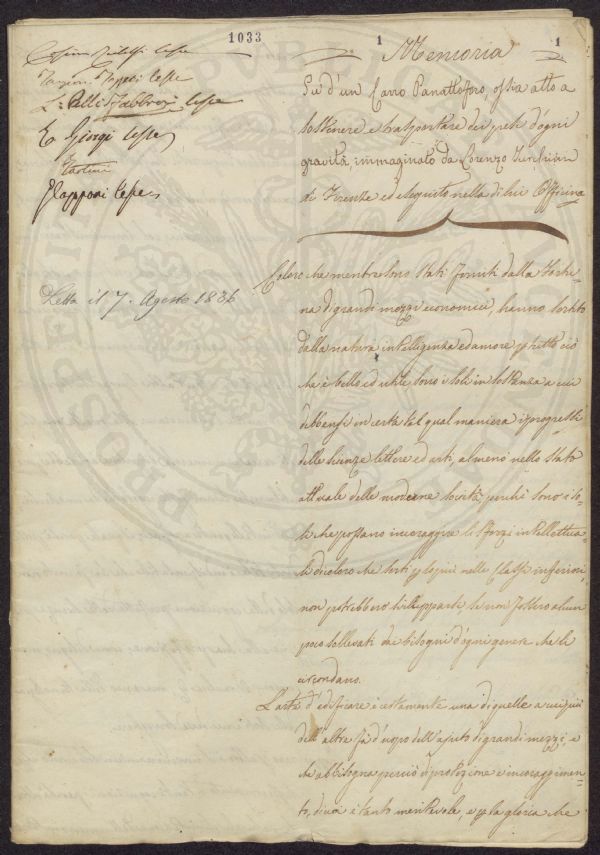 1033
1
1
Memoria
Su d'un Carro Panattoforo, ossia atto a
sostenere e trasportare dei pesi d'ogni
gravità, immaginato da Lorenzo
di Firenze ed eseguito nella di lui Officina
Cosimo Ridolfi Cesre
Cesre
L. Pelli Fabbroni Cesre
E Giorgi Cesre
Cesre
Letta il 7. Agosto 1836
Coloro che mentre sono stati forniti dalla fortu-
na di grandi mezzi economici, hanno sortito
dalla natura intelligenza ed amore p tutto ciò
che è bello ed utile sono i soli in sostanza a cui
debbansi in certa tal qual maniera i progressi
delle scienze lettere ed arti, almeno nello stato
attuale delle moderne società, perchè sono i so-
li che possano incoraggire li sforzi intellettua-
li di coloro che sorti p lo più nelle classi inferiori,
non potrebbero svilupparsi se non fossero alcun
poco sollevati dai bisogni d'ogni genere che li
circondano.
L'arte d'edificare è certamente una di quelle a cui più
dell'altre fà d'uopo dell'ajuto di grandi mezzi, e
che abbisogna perciò di protezione e incoraggimen-
to, di cui è tanto meritevole, e p la gloria che